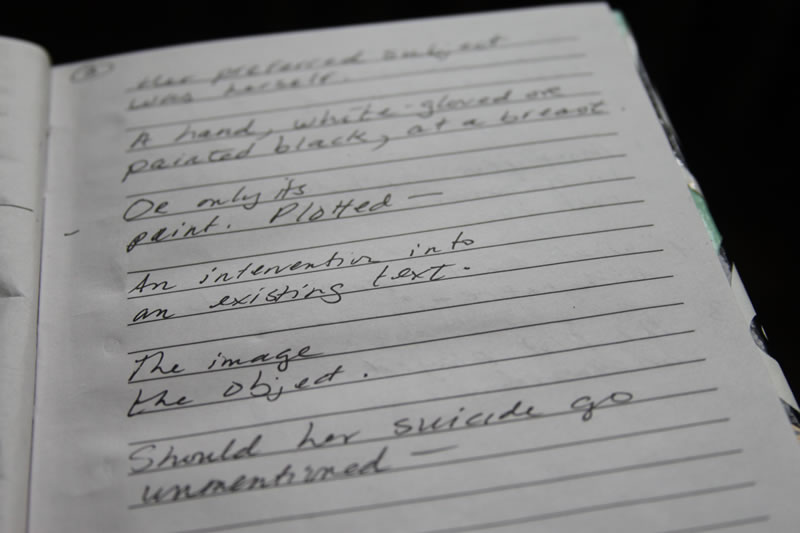 ③
Her preferred subject
was herself.
A hand, white-gloved or
painted black, at a breast.
Or only its
paint. Plotted —
An intervention into
an existing text.
The image
the object.
Should her suicide go
unmentioned —